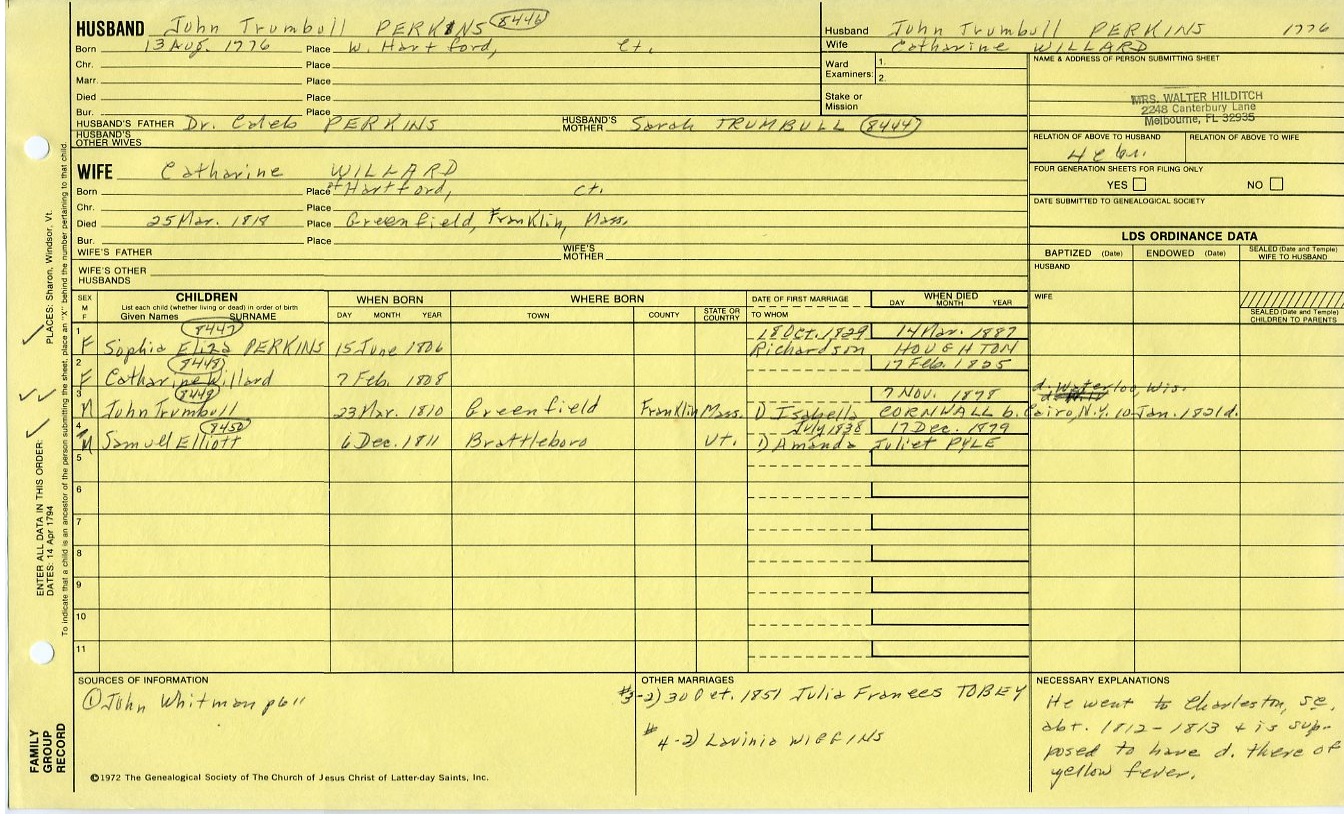 HUSBAND John Trumbull PERKINS 8446
Born 13 Aug. 1776 Place W. Hartford, Ct.
Chr. Place
Marr. Place
Died Place
Bur. Place
HUSBAND'S FATHER Dr. Caleb PERKINS HUSBAND'S MOTHER Sarah TRUMBULL 8444
HUSBAND'S OTHER WIVES
Husband John Trumbull PERKINS 1776
Wife Catharine WILLARD
Ward Examiners: 1.
2.
Stake or Mission
NAME & ADDRESS OF PERSON SUBMITTING SHEET
MRS. WALTER HILDITCH
2248 Canterbury Lane
Melbourne, FL 32935
RELATION OF ABOVE TO HUSBAND RELATION OF ABOVE TO WIFE
FOUR GENERATION SHEETS FOR FILING ONLY
YES NO
DATE SUBMITTED TO GENEALOGICAL SOCIETY
WIFE Catharine WILLARD
Born Place Hartford, Ct.
Chr. Place
Died 25 Mar. 1814 Place Greenfield, Franklin, Mass.
Bur. Place
WIFE'S FATHER WIFE'S MOTHER
WIFE'S OTHER HUSBANDS
LDS ORDINANCE DATA
BAPTIZED (Date) ENDOWED (Date) SEALED (Date and Temple) WIFE TO HUSBAND
HUSBAND
WIFE
SEALED (Date and Temple) CHILDREN TO PARENTS
SEX M F CHILDREN List each child (whether living or dead) in order of birth Given Names SURNAME
WHEN BORN DAY MONTH YEAR
WHERE BORN TOWN COUNTY STATE OR COUNTRY
DATE OF FIRST MARRIAGE TO WHOM
WHEN DIED DAY MONTH YEAR
1 8447 18 Oct. 1829 14 Mar. 1887
F Sophia Eliza PERKINS 15 June 1806 Richardson HOUGHTON
2 8448 17 Feb. 1825
F Catharine Willard 7 Feb. 1808
3 8449 7 Nov. 1878 d. Waterloo, Wis.
M John Trumbull 23 Mar. 1810 Greenfield Franklin Mass. 1) Isabella CORNWALL b. Cairo, N.Y. 10 Jan. 1821 d.
4 8450 July 1838 17 Dec. 1879
M Samuel Elliott 6 Dec. 1811 Brattleboro Vt. 1) Amanda Juliet PYLE
5
6
7
8
9
10
11
SOURCES OF INFORMATION
① John Whitman p611
OTHER MARRIAGES
#3-2) 30 Oct. 1851 Julia Frances TOBEY
#4-2) Lavinia WIGGINS
NECESSARY EXPLANATIONS
He went to Charleston, SC,
abt. 1812-1813 & is sup-
posed to have d. there of
yellow fever.
©1972 The Genealogical Society of The Church of Jesus Christ of Latter-day Saints, Inc.
FAMILY GROUP RECORD
ENTER ALL DATA IN THIS ORDER:
DATES: 14 Apr 1794
PLACES: Sharon, Windsor, Vt.
To indicate that a child is an ancestor of the person submitting the sheet, place an "X" behind the number pertaining to that child.